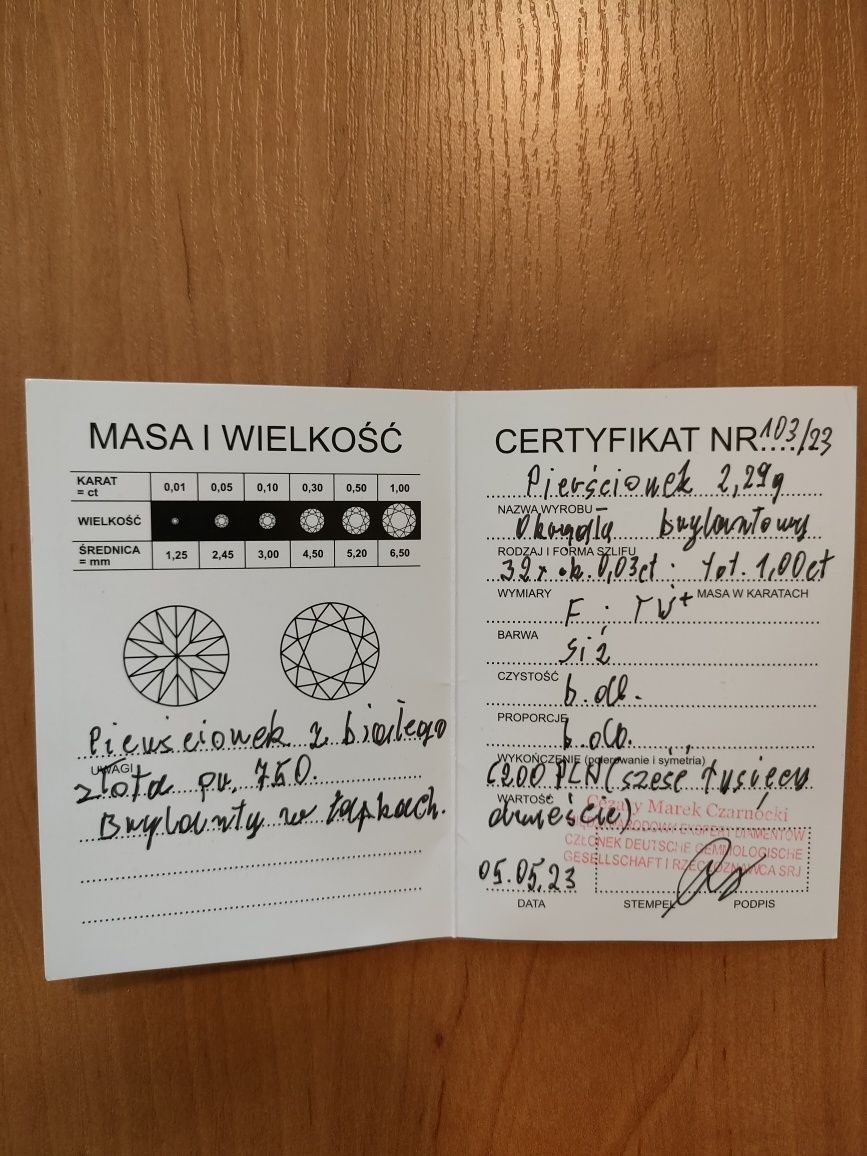 MASA I WIELKOŚĆ
KARAT = ct 0,01 0,05 0,10 0,30 0,50 1,00
WIELKOŚĆ
ŚREDNICA = mm 1,25 2,45 3,00 4,50 5,20 6,50
Pierścionek z białego
UWAGI
złota pr. 750.
Brylanty w łapkach.
CERTYFIKAT NR 103/23
Pierścionek 2,29g
NAZWA WYROBU
Okrągła brylantowy
RODZAJ I FORMA SZLIFU
32 x ok. 0,03ct. tot. 1,00ct
WYMIARY MASA W KARATACH
F. TW+
BARWA
Si2
CZYSTOŚĆ
b.db.
PROPORCJE
b.db.
WYKOŃCZENIE (polerowanie i symetria)
6200 PLN (sześć tysięcy
WARTOŚĆ
dwieście)
Cezary Marek Czarnocki
MIĘDZYNARODOWY EKSPERT DIAMENTÓW
CZŁONEK DEUTSCHE GEMMOLOGISCHE
GESELLSCHAFT I RZECZOZNAWCA SRJ
05.05.23
DATA STEMPEL PODPIS